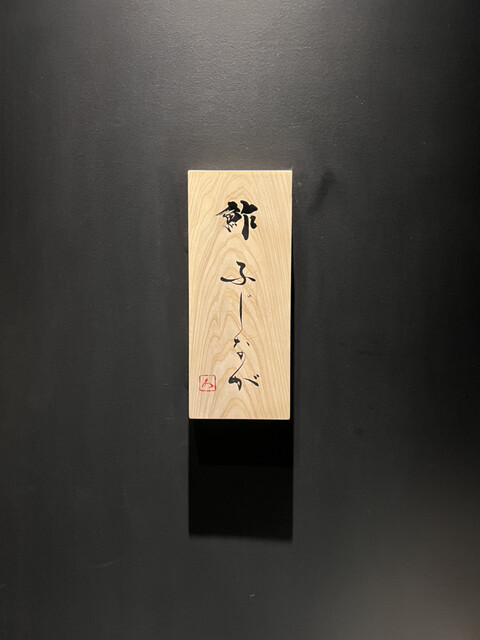 鮓 ふじなが